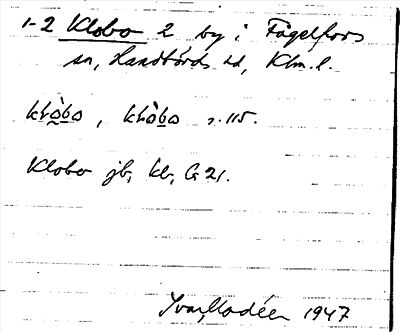 1-2 Klobo 2 by i Fågelfors
sn, Handbörds hd, Klm. l.
klò̱bo, klòbo s. 115.
Klobo jb, kb, G 21.
Ivar Modéer 1947